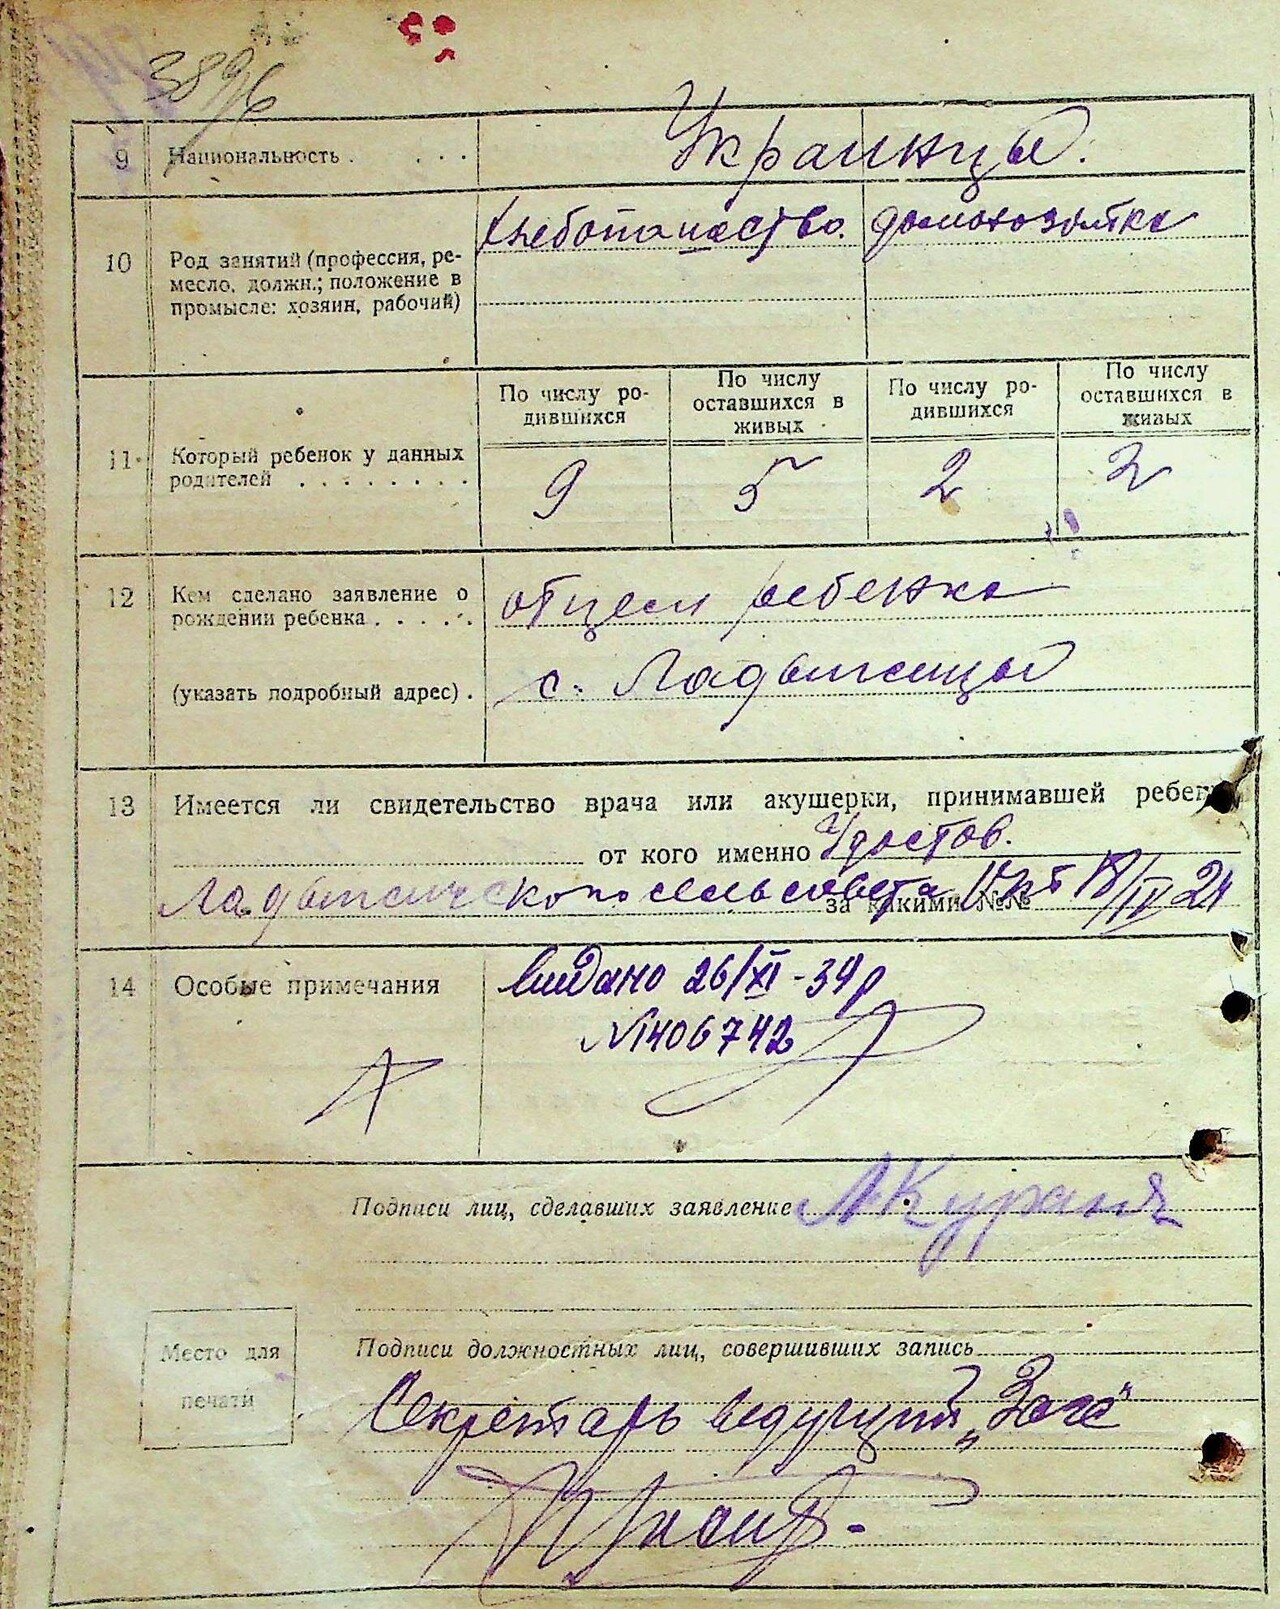 389/6
9 Национальность . . . . Украинцы.
10 Род занятий (профессия, ре-
месло, должн.; положение в
промысле: хозяин, рабочий)
хлебопашество. домохозяйка
11 Который ребенок у данных
родителей . . . . . . . .
По числу ро-
дившихся
По числу
оставшихся в
живых
По числу ро-
дившихся
По числу
оставшихся в
живых
9 5 2 2
12 Кем сделано заявление о
рождении ребенка . . . . .
отцем ребенка
(указать подробный адрес) . с. Ладыжицы
13 Имеется ли свидетельство врача или акушерки, принимавшей ребен
от кого именно Удостов.
Ладыжичского сельсовета за какими №№ 18/IV 24
14 Особые примечания
видано 26/XI - 39р
N1406742
Подписи лиц, сделавших заявление
Место для
печати
Подписи должностных лиц, совершивших запись
Секретарь ведущий „Загс"